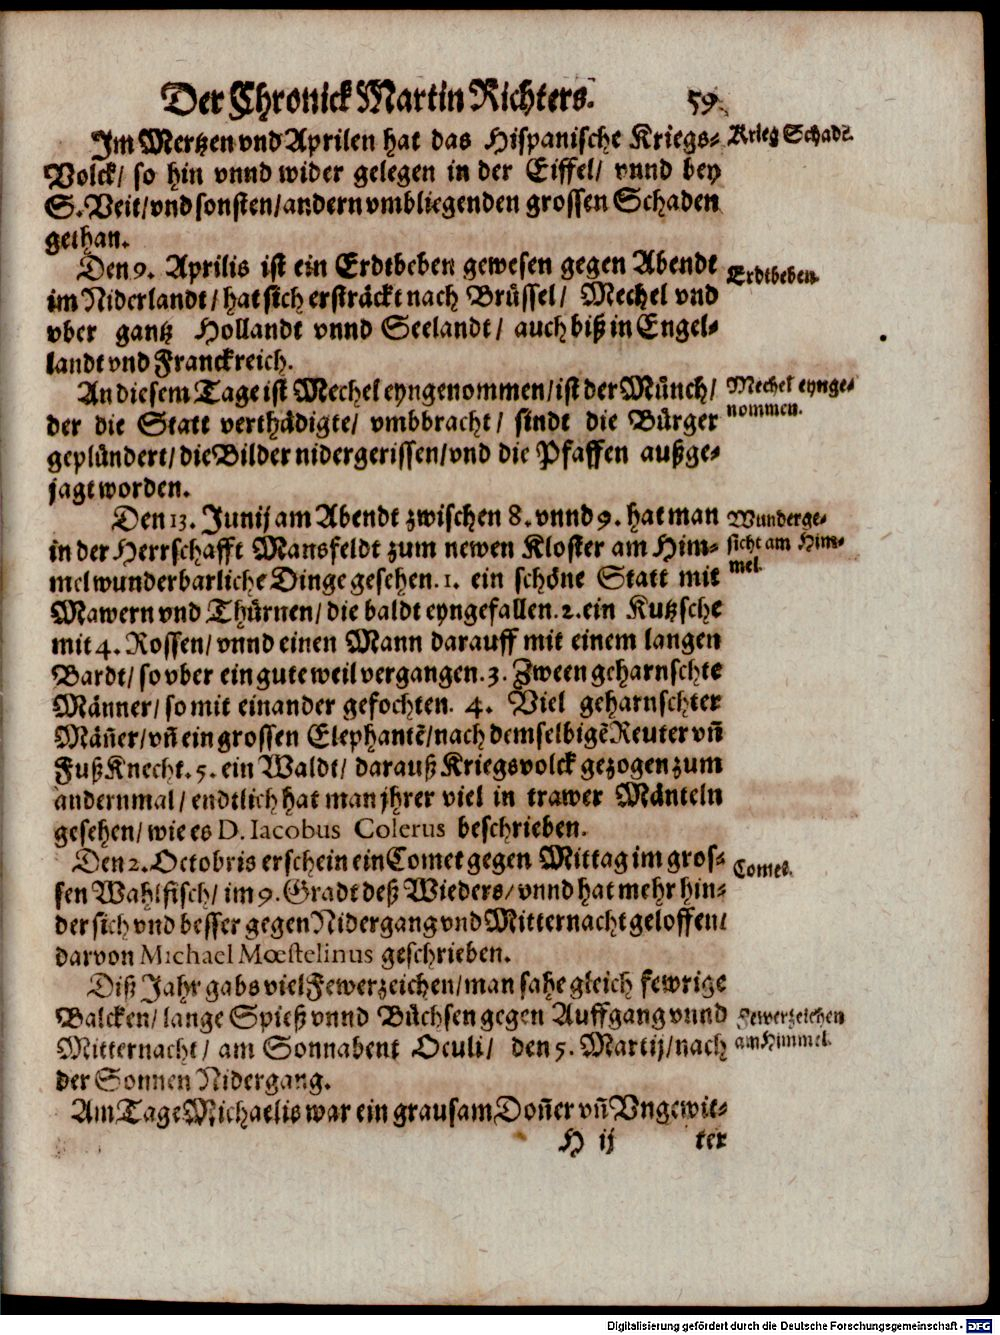 Der Chronick Martin Richters. 59.
Im Mertzen vnd Aprilen hat das Hispanische Kriegs-
Volck/ so hin vnnd wider gelegen in der Eiffel/ vnnd bey
S. Veit/ vnd sonsten/ andern vmbliegenden grossen Schaden
gethan.
Krieg Schadẽ.
Den 9. Aprilis ist ein Erdtbeben gewesen gegen Abendt
im Niderlandt/ hat sich ersträckt nach Brüssel/ Mechel vnd
vber gantz Hollandt vnnd Seelandt/ auch biß in Engel-
landt vnd Franckreich.
Erdtbeben.
An diesem Tage ist Mechel eyngenommen/ ist der Münch/
der die Statt verthädigte/ vmbbracht/ sindt die Bürger
geplündert/ die Bilder nidergerissen/ vnd die Pfaffen außge-
jagt worden.
Mechel eynge-
nommen.
Den 13. Junij am Abendt zwischen 8. vnnd 9. hat man
in der Herrschafft Mansfeldt zum newen Kloster am Him-
mel wunderbarliche Dinge gesehen. 1. ein schöne Statt mit
Mawern vnd Thürnen/ die baldt eyngefallen. 2. ein Kutzsche
mit 4. Rossen/ vnnd einen Mann darauff mit einem langen
Bardt/ so vber ein gute weil vergangen. 3. Zween geharnschte
Männer/ so mit einander gefochten. 4. Viel geharnschter
Mäñer/ vñ ein grossen Elephantẽ/ nach demselbigẽ Reuter vñ
Fuß Knecht. 5. ein Waldt/ darauß Kriegsvolck gezogen zum
andernmal/ endtlich hat man jhrer viel in trawer Mänteln
gesehen/ wie es D. Iacobus Colerus beschrieben.
Wunderge-
sicht am Him-
mel.
Den 2. Octobris erschein ein Comet gegen Mittag im gros-
sen Wahlfisch/ im 9. Gradt deß Wieders/ vnnd hat mehr hin-
der sich vnd besser gegen Nidergang vnd Mitternacht geloffen/
darvon Michael Mœstelinus geschrieben.
Comet.
Diß Jahr gabs viel Fewerzeichen/ man sahe gleich fewrige
Balcken/ lange Spieß vnnd Büchsen gegen Auffgang vnnd
Mitternacht/ am Sonnabent Oculi/ den 5. Martij/ nach
der Sonnen Nidergang.
Fewerzeichen
am Himmel.
Am Tage Michaelis war ein grausam Doñer vñ Vngewit-
H ij ter
Digitalisierung gefördert durch die Deutsche Forschungsgemeinschaft - DFG